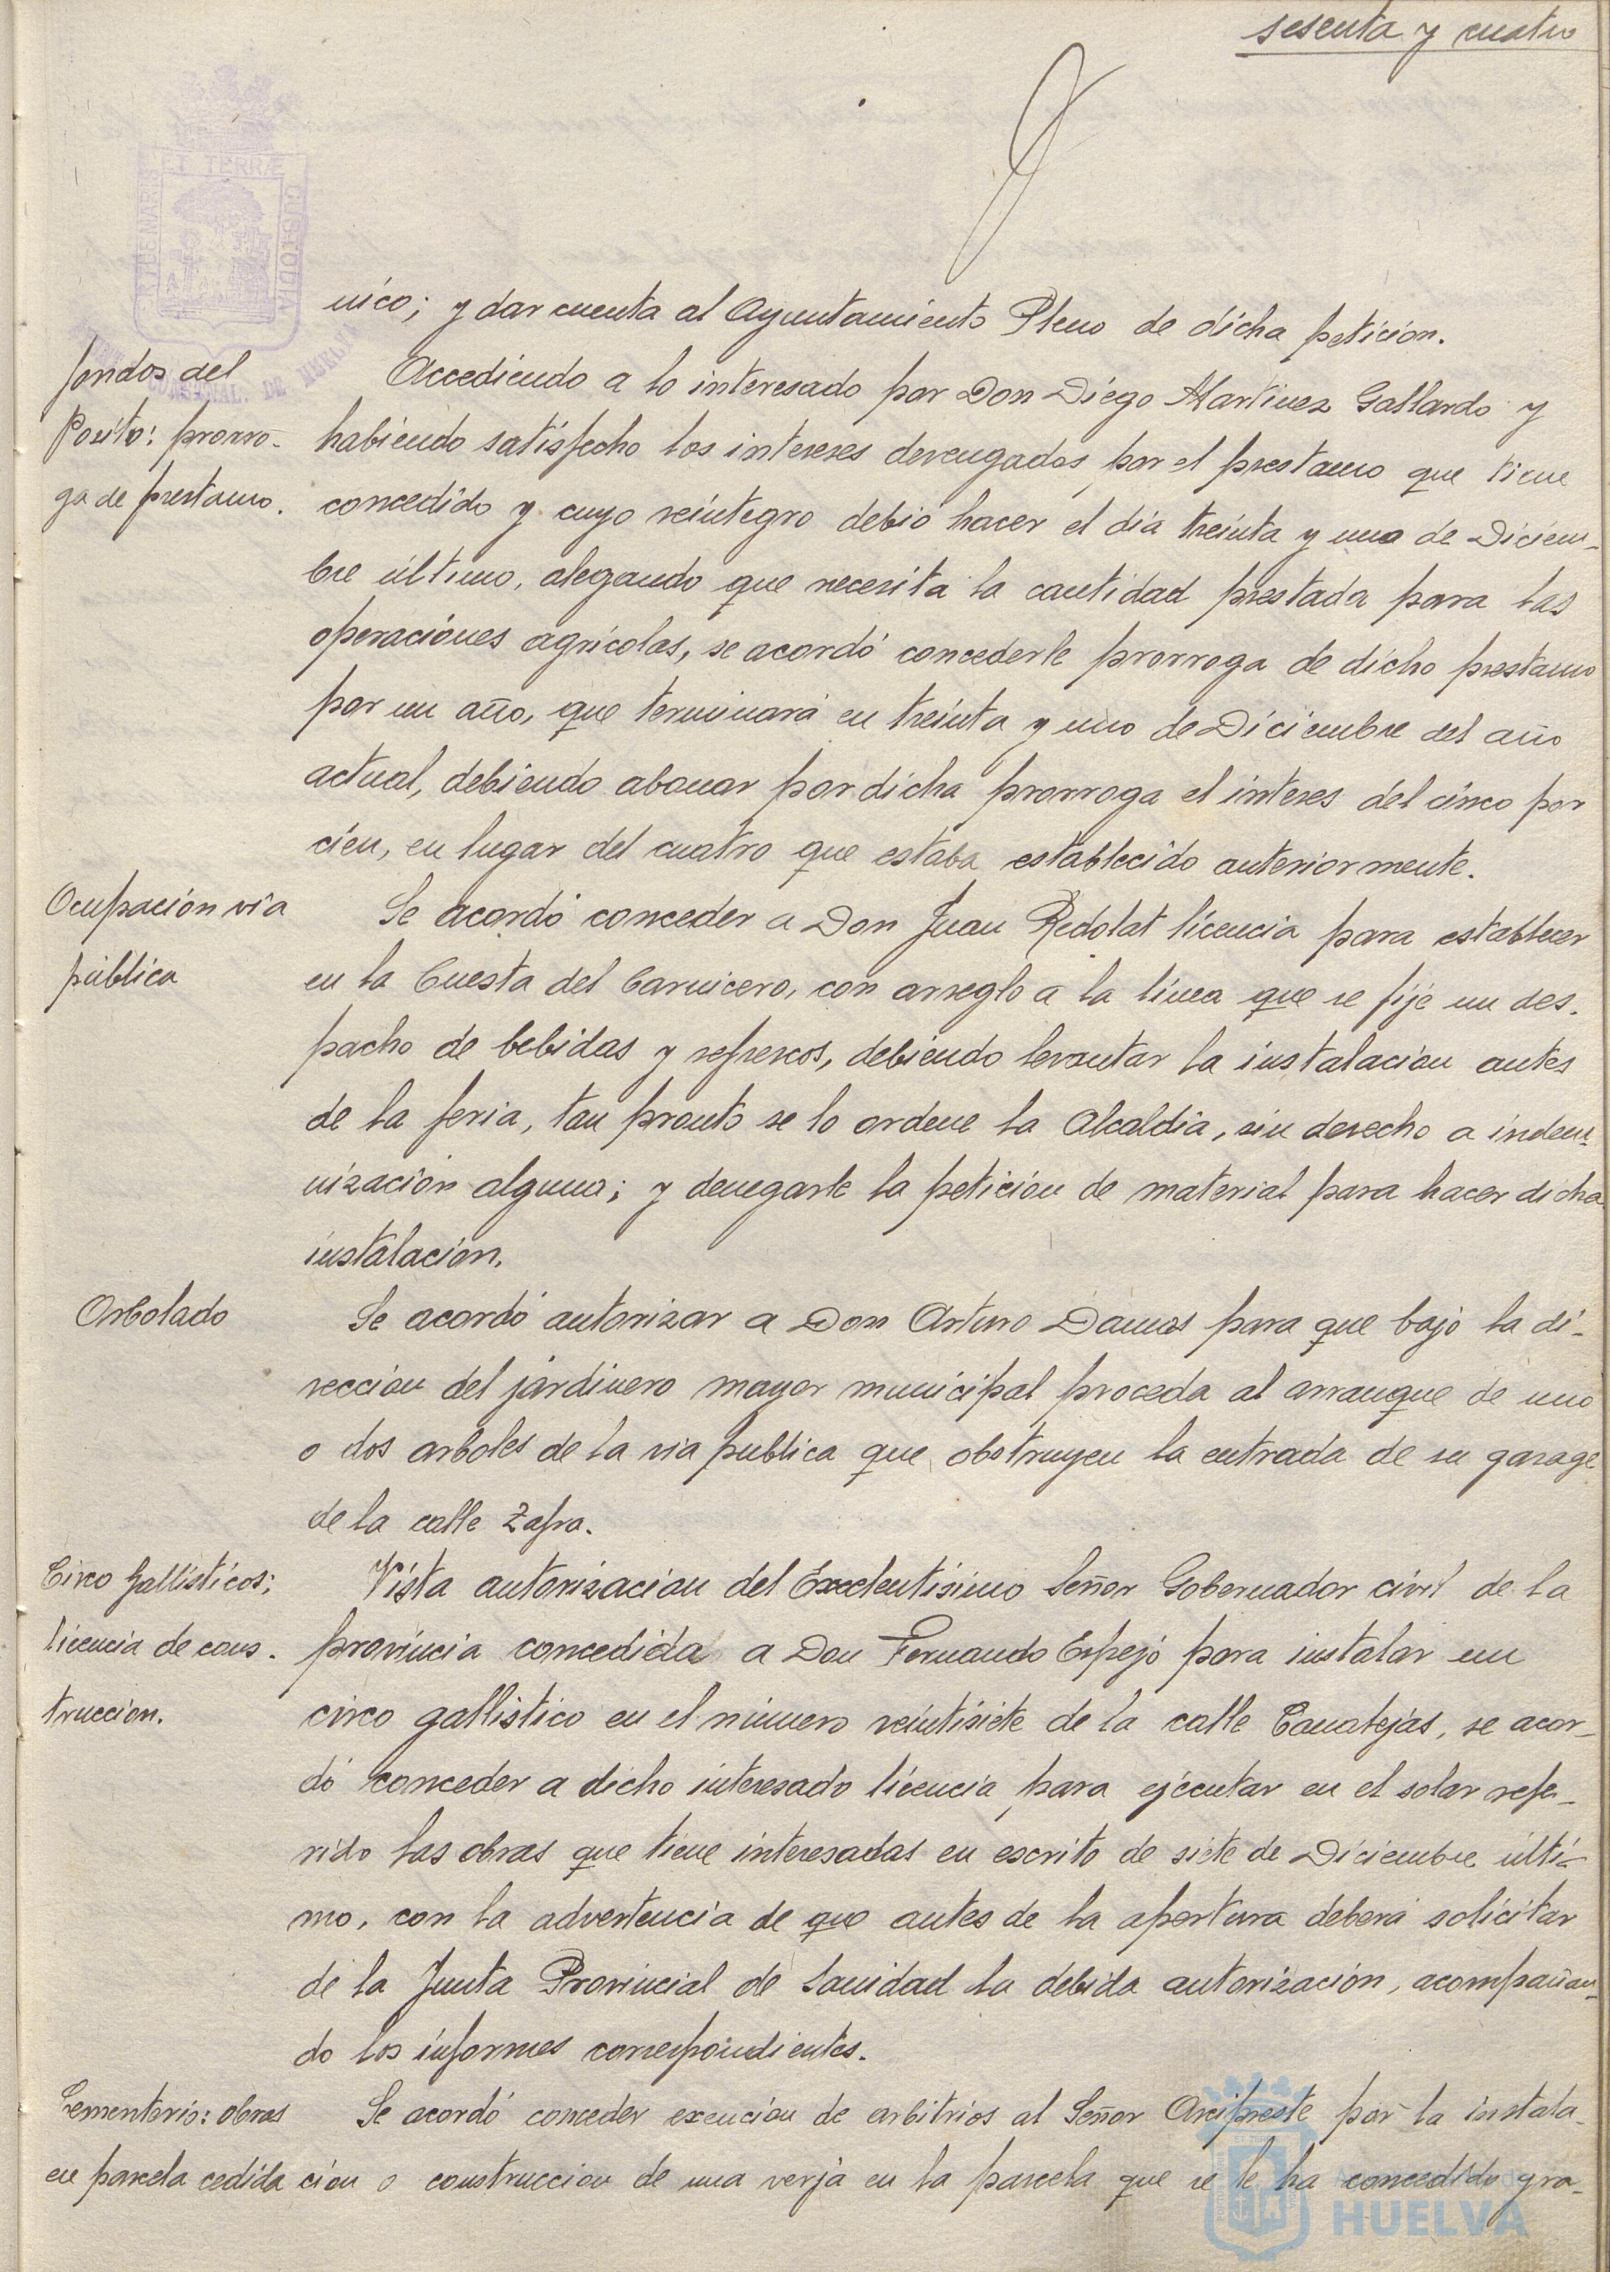 sesenta y cuatro
nico; y dar cuenta al Ayuntamiento Pleno de dicha petición.
fondos del
Posito: prorro-
ga de prestamo.
Accediendo a lo interesado por Don Diego Martinez Gallardo y
habiendo satisfecho los intereses devengados por el prestamo que tiene
concedido y cuyo reintegro debió hacer el día treinta y uno de Diciem-
bre último, alegando que necesita la cantidad prestada para las
operaciones agrícolas, se acordó concederle prorroga de dicho prestamo
por un año, que terminará en treinta y uno de Diciembre del año
actual, debiendo abonar por dicha prorroga el interes del cinco por
cien, en lugar del cuatro que estaba establecido anteriormente.
Ocupación via
pública
Se acordó conceder a Don Juan Redolat licencia para establecer
en la Cuesta del Carnicero, con arreglo a la línea que se fije un des-
pacho de bebidas y refrescos, debiendo levantar la instalación antes
de la feria, tan pronto se lo ordene la Alcaldía, sin derecho a indem-
nización alguna; y denegarle la petición de material para hacer dicha
instalación.
Arbolado
Se acordó autorizar a Don Arturo Damas para que bajo la di-
rección del jardinero mayor municipal proceda al arranque de uno
o dos arboles de la via publica que obstruyen la entrada de su garage
de la calle Zafra.
Circo Gallísticos;
licencia de cons-
truccion.
Vista autorización del Excelentisimo Señor Gobernador civil de la
provincia concedida a Don Fernando Espejo para instalar un
circo gallistico en el número veintisiete de la calle Canalejas, se acor-
dó conceder a dicho interesado licencia para ejecutar en el solar refe-
rido las obras que tiene interesadas en escrito de siete de Diciembre últi-
mo, con la advertencia de que antes de la apertura deberá solicitar
de la Junta Provincial de Sanidad la debida autorización, acompañan-
do los informes correspondientes.
Cementerio: obras
en parcela cedida
Se acordó conceder exención de arbitrios al Señor Arcipreste por la instala-
ción o construccion de una verja en la parcela que se le ha concedido gra-
HUELVA